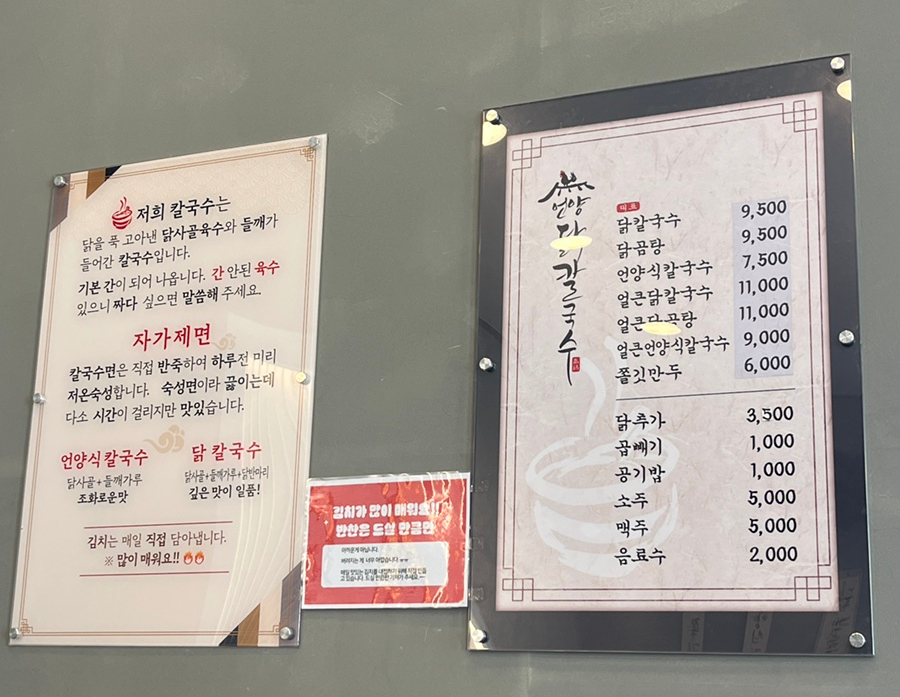 저희 칼국수는
닭을 푹 고아낸 닭사골육수와 들깨가
들어간 칼국수입니다.
기본 간이 되어 나옵니다. 간 안된 육수
있으니 짜다 싶으면 말씀해 주세요.
자가제면
칼국수면은 직접 반죽하여 하루전 미리
저온숙성합니다. 숙성면이라 끓이는데
다소 시간이 걸리지만 맛있습니다.
언양식칼국수
닭사골+들깨가루
조화로운맛
닭 칼국수
닭사골+들깨가루+닭반마리
깊은 맛이 일품!
김치는 매일 직접 담아냅니다.
※ 많이 매워요!!
김치가 많이 매워요!!
반찬은 드실 만큼만
아까운게 아닙니다.
버려지는 게 너무 아깝습니다
매일 맛있는 김치를 대접하기 위해 직접 만들
고 있습니다. 드실 만큼만 가져가 주세요.
언양
닭칼국수
대표
닭칼국수 9,500
닭곰탕 9,500
언양식칼국수 7,500
얼큰닭칼국수 11,000
얼큰닭곰탕 11,000
얼큰언양식칼국수 9,000
쫄깃만두 6,000
닭추가 3,500
곱빼기 1,000
공기밥 1,000
소주 5,000
맥주 5,000
음료수 2,000